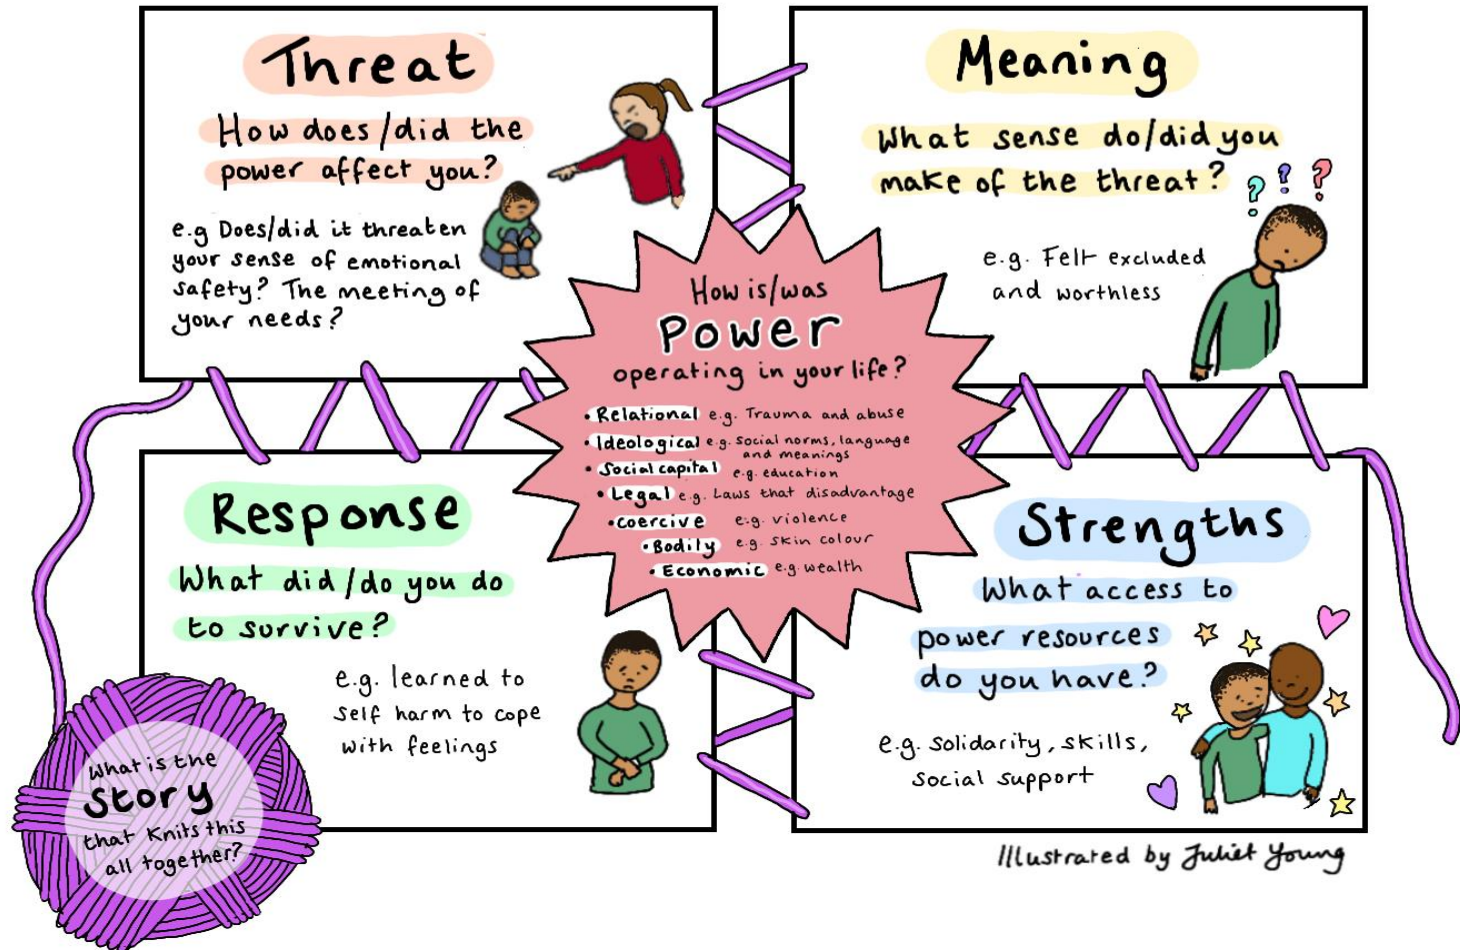 Threat
How does/did the
power affect you?
e.g Does/did it threaten
your sense of emotional
safety? The meeting of
your needs?
Meaning
What sense do/did you
make of the threat?
? ? ?
e.g. Felt excluded
and worthless
How is/was
Power
operating in your life?
• Relational e.g. Trauma and abuse
• Ideological e.g. social norms, language
and meanings
• Social capital e.g. education
• Legal e.g. Laws that disadvantage
• coercive e.g. violence
• Bodily e.g. skin colour
• Economic e.g. wealth
Response
What did/do you do
to survive?
e.g. learned to
self harm to cope
with feelings
Strengths
What access to
power resources
do you have?
e.g. solidarity, skills,
social support
What is the
story
that knits this
all together?
Illustrated by Juliet Young